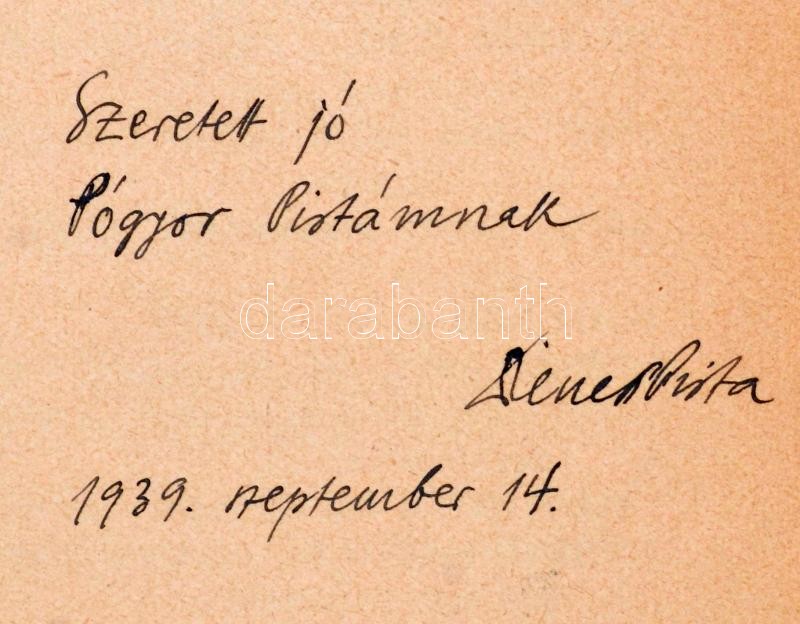 Szeretett jó
Pógyor Pistámnak
darabanth
Dénes Pista
1939. szeptember 14.